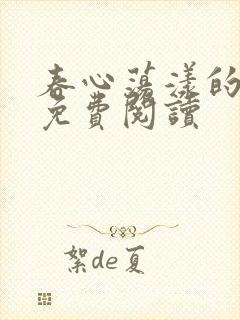 春心蕩漾的
免費閱讀
絮de夏